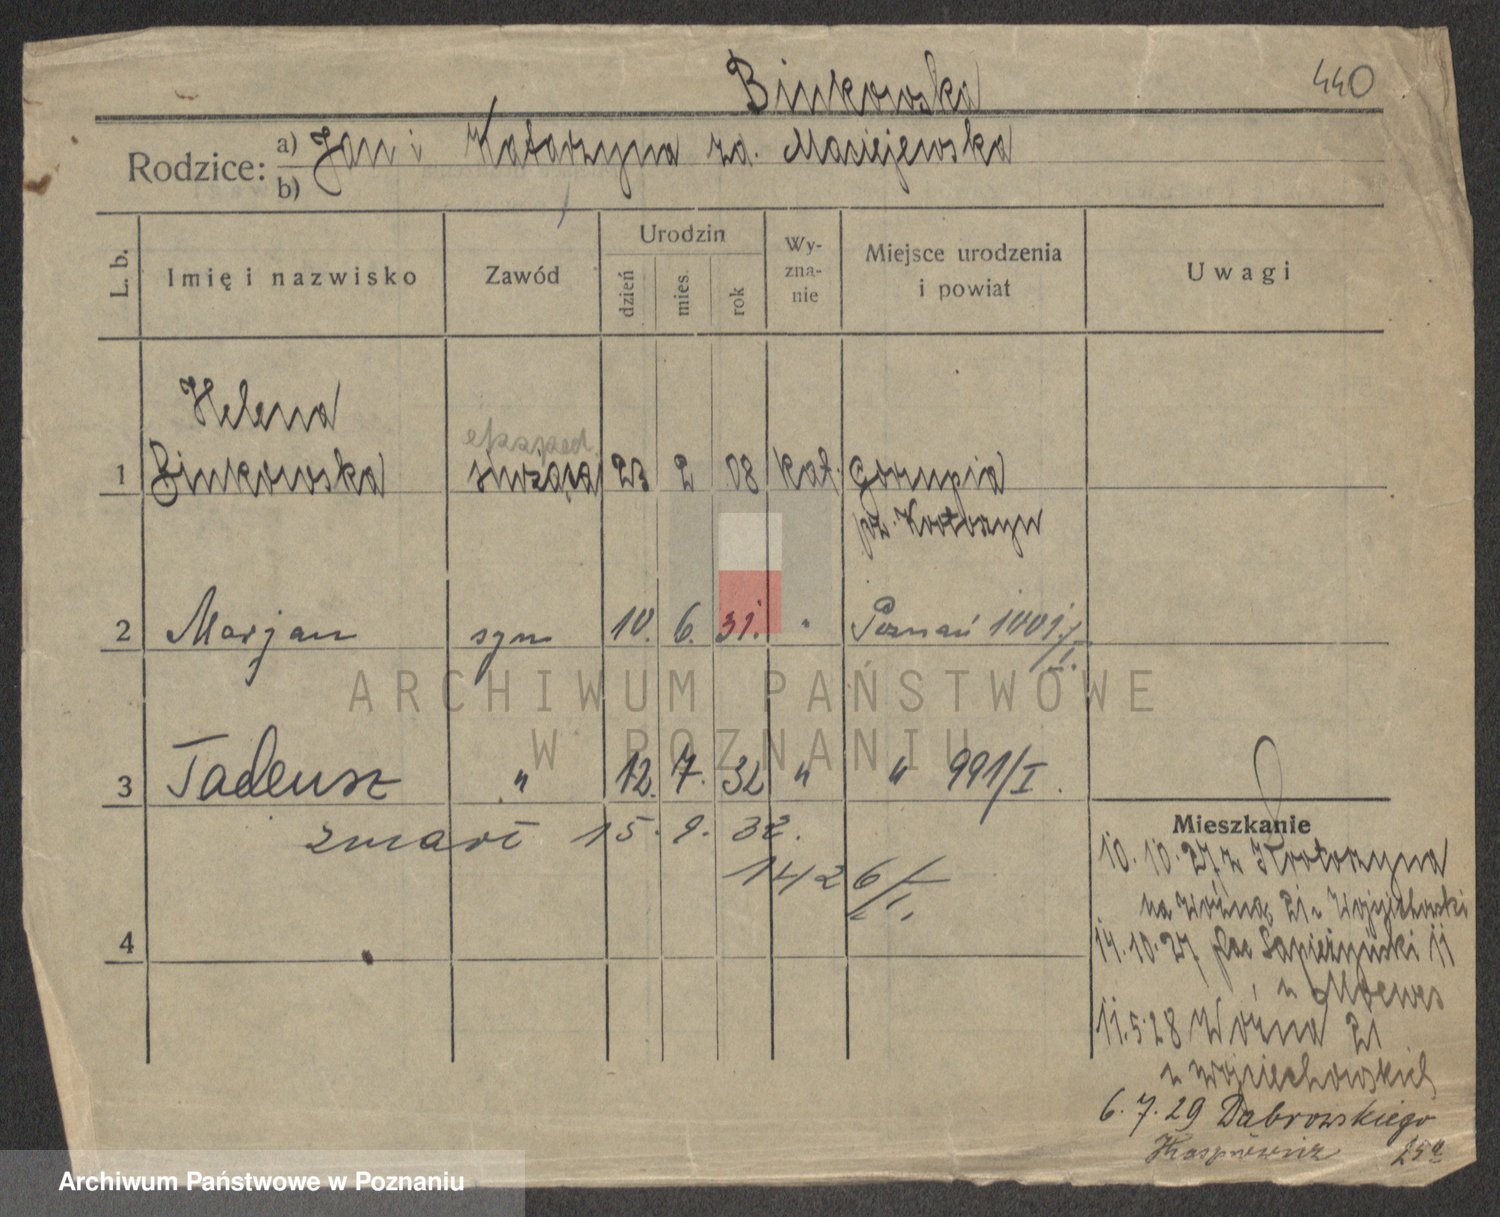 Binkowska
440
Rodzice: a) Jan i Katarzyna za. Maciejewska
b)
L. b.
Imię i nazwisko
Zawód
Urodzin
dzień
mies.
rok
Wy-
zna-
nie
Miejsce urodzenia
i powiat
Uwagi
Helena
eksped.
1 Binkowska służąca 23 2 08 kat. Gorupia
pz. Krotoszyn
2 Marjan syn 10. 6. 31. " Poznań 1001/I.
3 Tadeusz " 12. 7. 32 " " 991/I.
zmarł 15. 9. 32.
1426/I.
4
Mieszkanie
10. 10. 27 z Krotoszyna
na Woźną 21 u Wojciechowski
14. 10. 27 plac Sapieżyński 11
u Moewes
11. 5. 28 Woźna 21
u Wojciechowskich
6. 7. 29 Dąbrowskiego
25a
ARCHIWUM PAŃSTWOWE
W POZNANIU
Archiwum Państwowe w Poznaniu